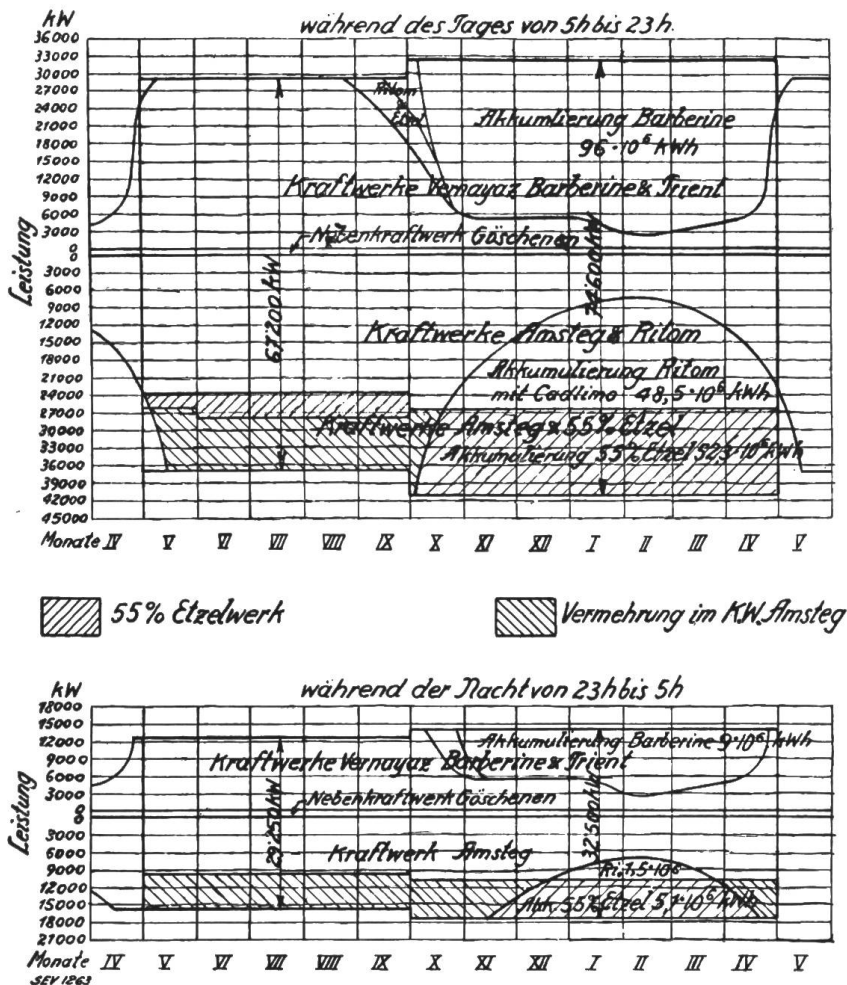 kW
während des Tages von 5h bis 23h.
36000
33000
30000
27000
24000
21000
18000
15000
12000
9000
6000
3000
0
0
3000
6000
9000
12000
15000
18000
21000
24000
27000
30000
33000
36000
39000
42000
45000
Leistung
Ritom
&
Etzel
Akkumlierung Barberine
96·10⁶ kWh
Kraftwerke Vernayaz Barberine & Trient
Nebenkraftwerk Göschenen
67200 kW
74600 kW
Kraftwerke Amsteg & Ritom
Akkumulierung Ritom
mit Cadlimo 48,5·10⁶ kWh
Kraftwerke Amsteg & 55% Etzel
Akkumulierung 55% Etzel 52,3·10⁶ kWh
Monate IV V VI VII VIII IX X XI XII I II III IV V
55% Etzelwerk
Vermehrung im KW. Amsteg
kW
während der Nacht von 23h bis 5h
18000
15000
12000
9000
6000
3000
0
0
3000
6000
9000
12000
15000
18000
21000
Leistung
Akkumulierung Barberine 9·10⁶ kWh
Kraftwerke Vernayaz Barberine & Trient
Nebenkraftwerk Göschenen
29250 kW
32500 kW
Kraftwerk Amsteg
Ri. 1,5·10⁶
Akk. 55% Etzel 5,1·10⁶ kWh
Monate IV V VI VII VIII IX X XI XII I II III IV V
SEV 1263